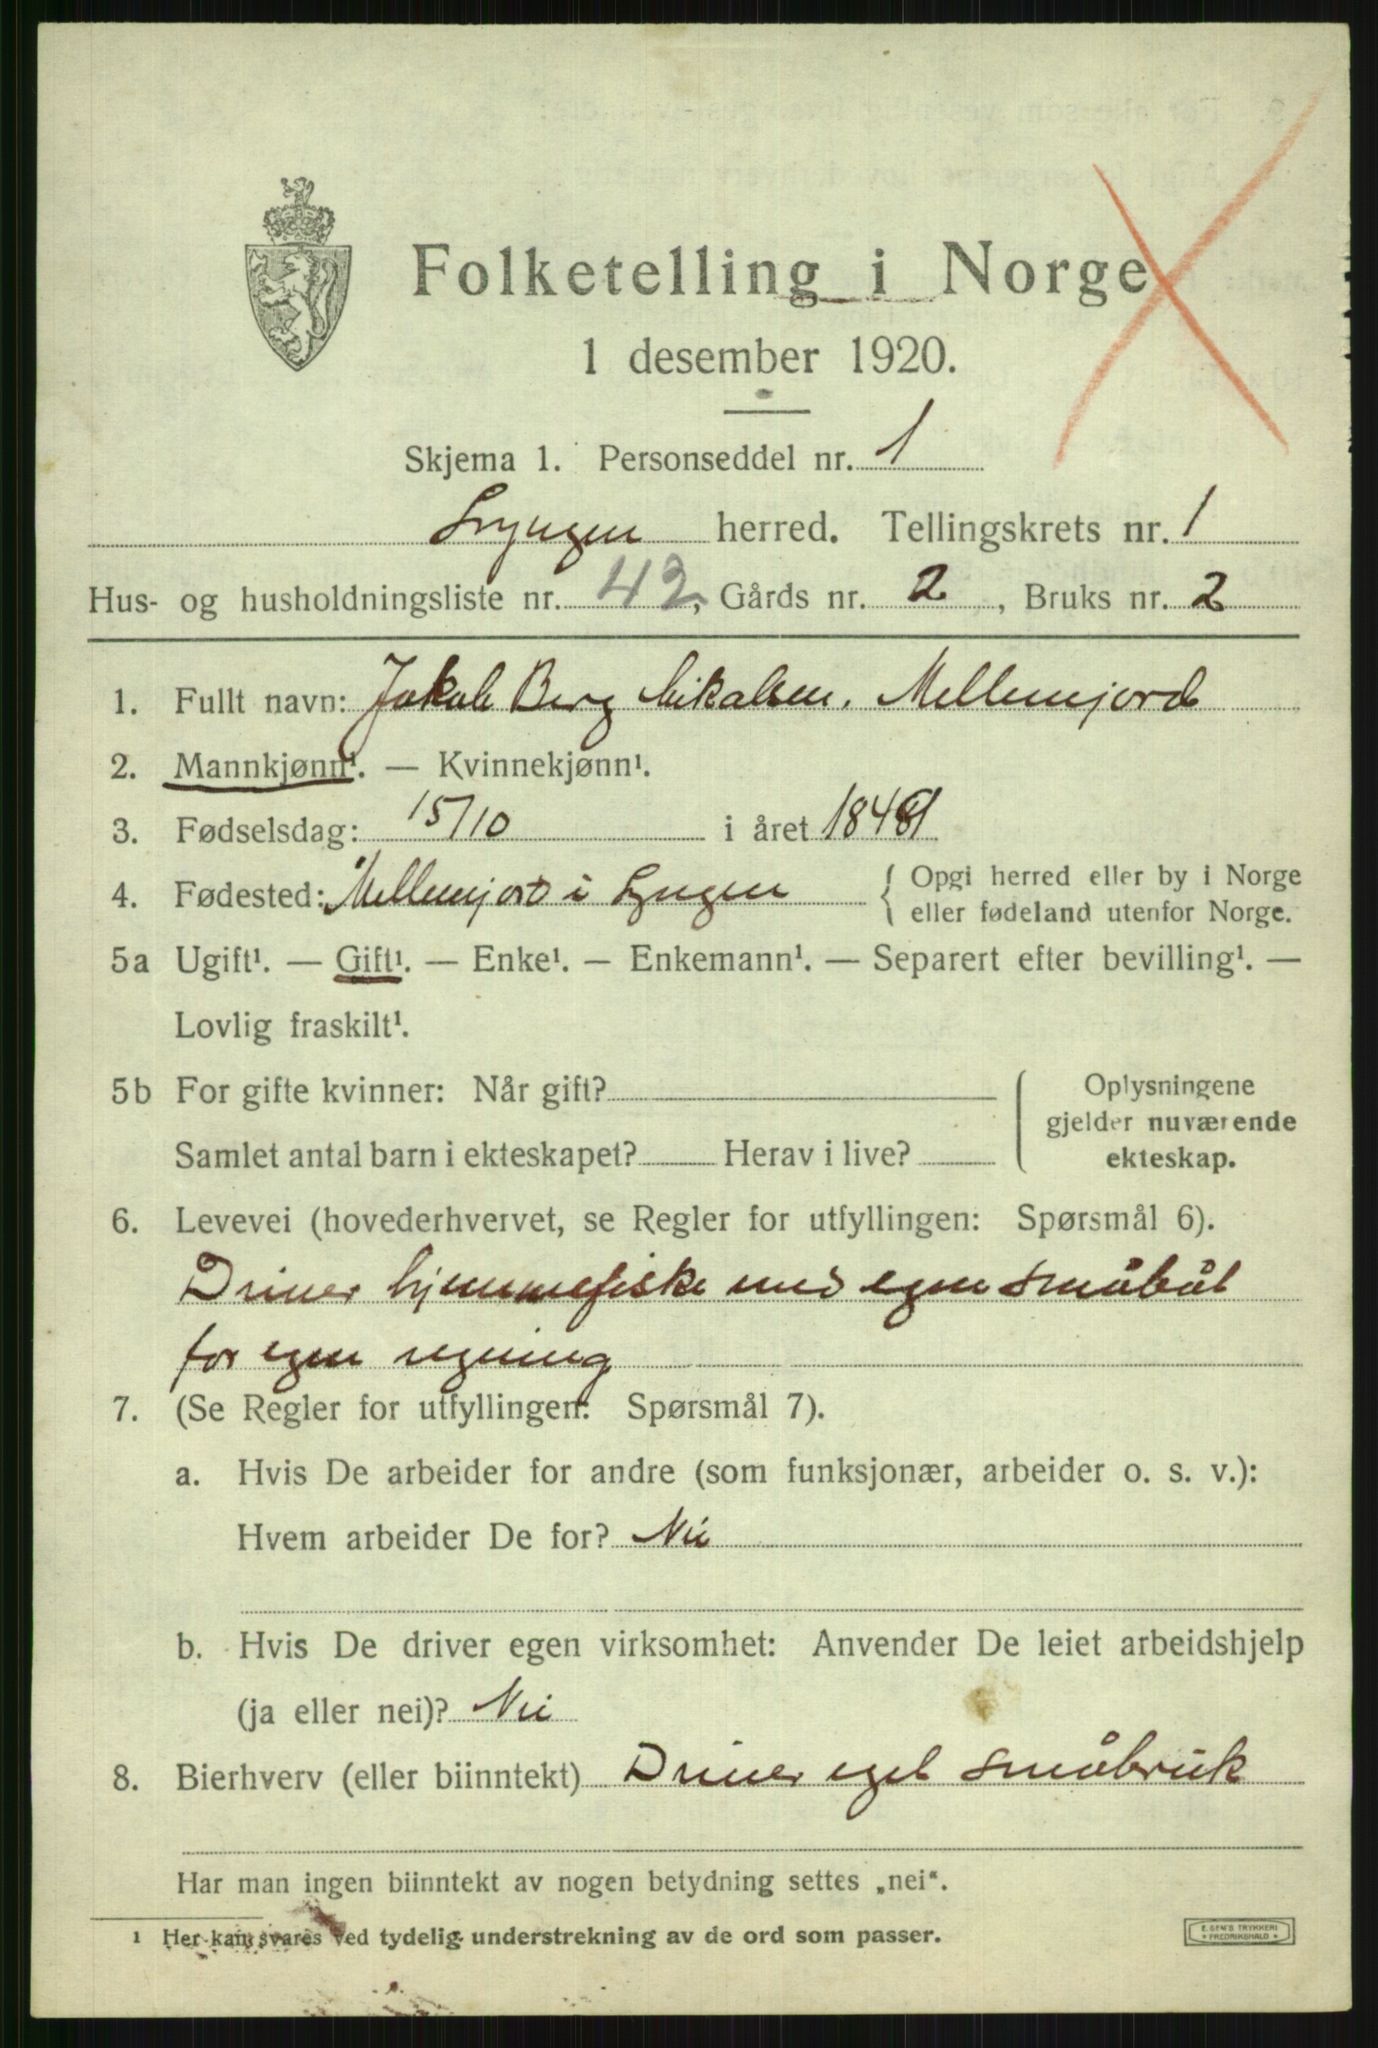 Folketelling i Norge
1 desember 1920.
Skjema 1. Personseddel nr. 1
Lyngen herred. Tellingskrets nr. 1
Hus- og husholdningsliste nr. 42, Gårds nr. 2, Bruks nr. 2
1. Fullt navn: Jakob Berg Mikalsen. Mellemjord
2. Mannkjønn¹. — Kvinnekjønn¹.
3. Fødselsdag: 15/10 i året
4. Fødested: Mellemjord i Lyngen { Opgi herred eller by i Norge
eller fødeland utenfor Norge.
5a Ugift¹. — Gift¹. — Enke¹. — Enkemann¹. — Separert efter bevilling¹. —
Lovlig fraskilt¹.
5b For gifte kvinner: Når gift? Oplysningene
gjelder nuværende
Samlet antal barn i ekteskapet? Herav i live? ekteskap.
6. Levevei (hovederhvervet, se Regler for utfyllingen: Spørsmål 6).
Driver hjemmefiske med egen småbåt
for egen regning
7. (Se Regler for utfyllingen: Spørsmål 7).
a. Hvis De arbeider for andre (som funksjonær, arbeider o. s. v.):
Hvem arbeider De for? Nei
b. Hvis De driver egen virksomhet: Anvender De leiet arbeidshjelp
(ja eller nei)? Nei
8. Bierhverv (eller biinntekt) Driver eget småbruk
Har man ingen biinntekt av nogen betydning settes „nei“.
¹ Her kan svares ved tydelig understrekning av de ord som passer.
E. SEM'S TRYKKERI
FREDRIKSHALD